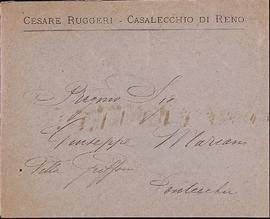 CESARE RUGGERI - CASALECCHIO DI RENO
Pregmo Sig
Giuseppe Mariani
Villa
Pontecchio